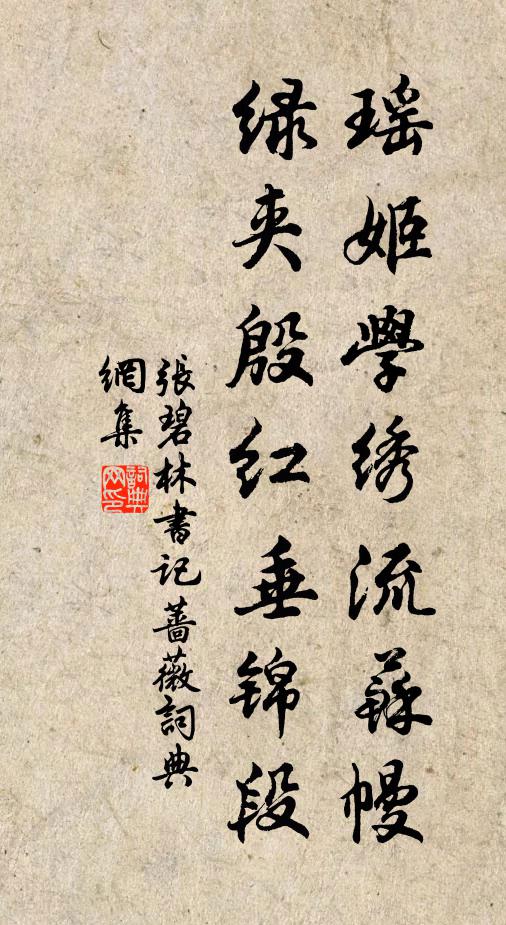 瑶姬學绣流蘇幔
绿夹殷红垂锦段
張碧林書記薔薇詞典
網集
詞典網印